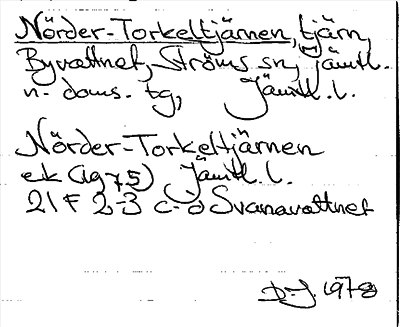 Nörder-Torkeltjärnen, tjärn,
Byvattnet, Ströms sn, Jämtl.
n. doms. tg, Jämtl. l.
Nörder-Torkeltjärnen
ek (lg 75) Jämtl. l.
21 F 2-3 c-d Svanavattnet
D-J. 1978